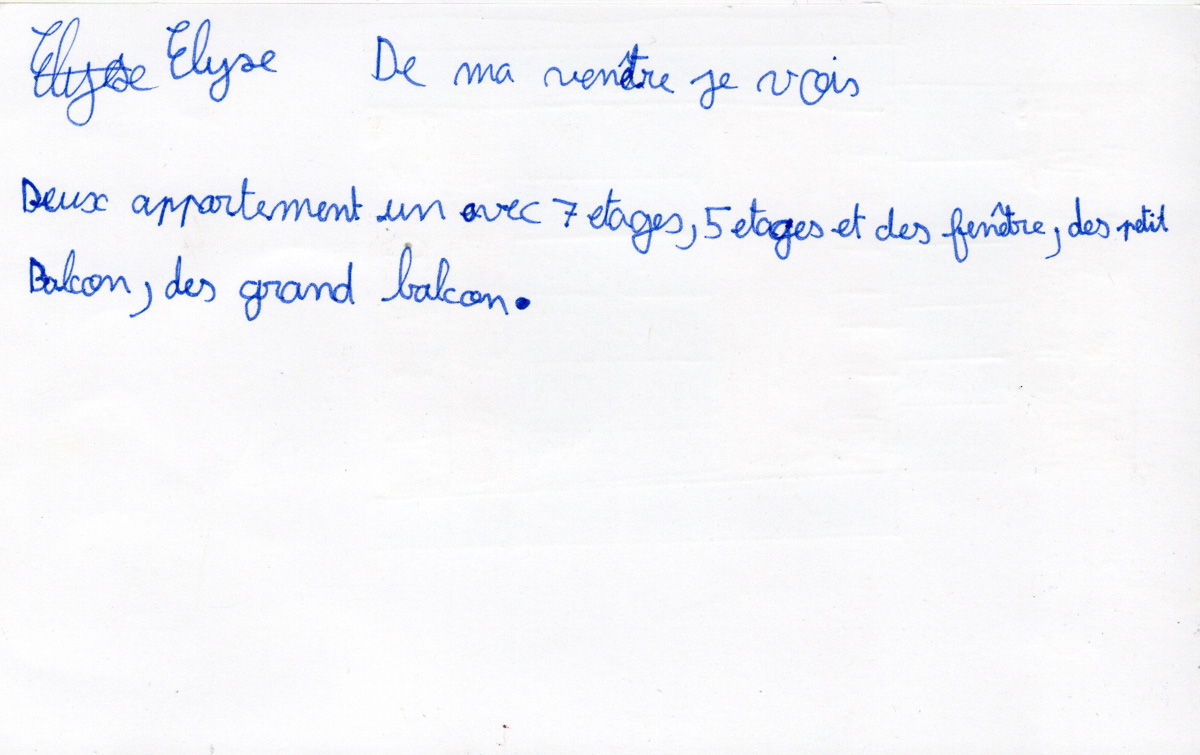 Elyse Elyse De ma venêtre je vois
Deux appartement un avec 7 etages, 5 etages et des fenêtre, des petit
Balcon, des grand balcon.